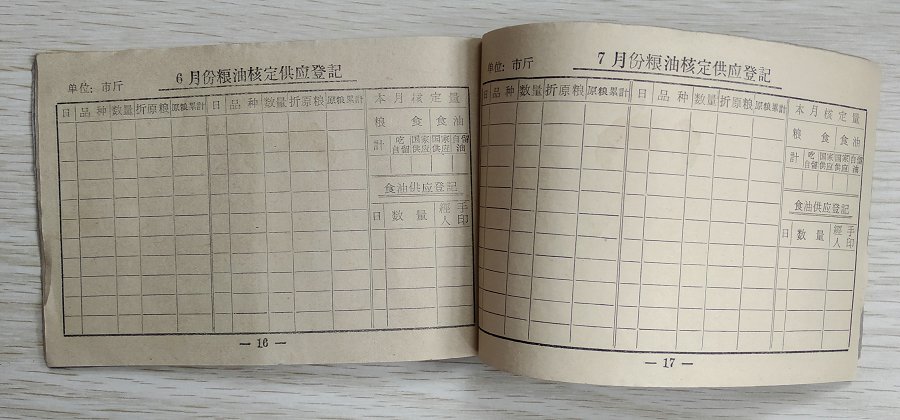 6月份粮油核定供应登記
单位: 市斤
日 品种 数量 折原粮 原粮累計 日 品种 数量 折原粮 原粮累計 本月核定量
粮食 食油
計 吃自留 国家供应 国家供应 自留油
食油供应登記
日 数量 經手人印
— 16 —
7月份粮油核定供应登記
单位: 市斤
日 品种 数量 折原粮 原粮累計 日 品种 数量 折原粮 原粮累計 本月核定量
粮食 食油
計 吃自留 国家供应 国家供应 自留油
食油供应登記
日 数量 經手人印
— 17 —